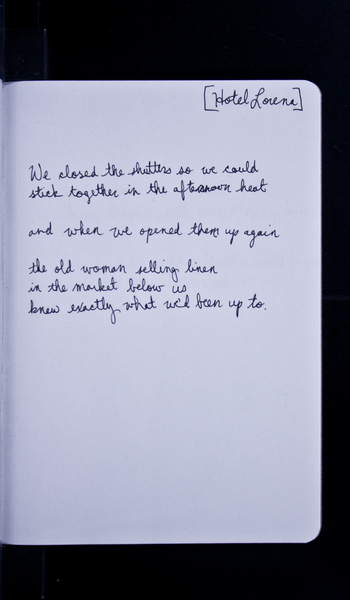 [Hotel Lorena]
We closed the shutters so we could
stick together in the afternoon heat
and when we opened them up again
the old woman selling linen
in the market below us
knew exactly what we'd been up to.